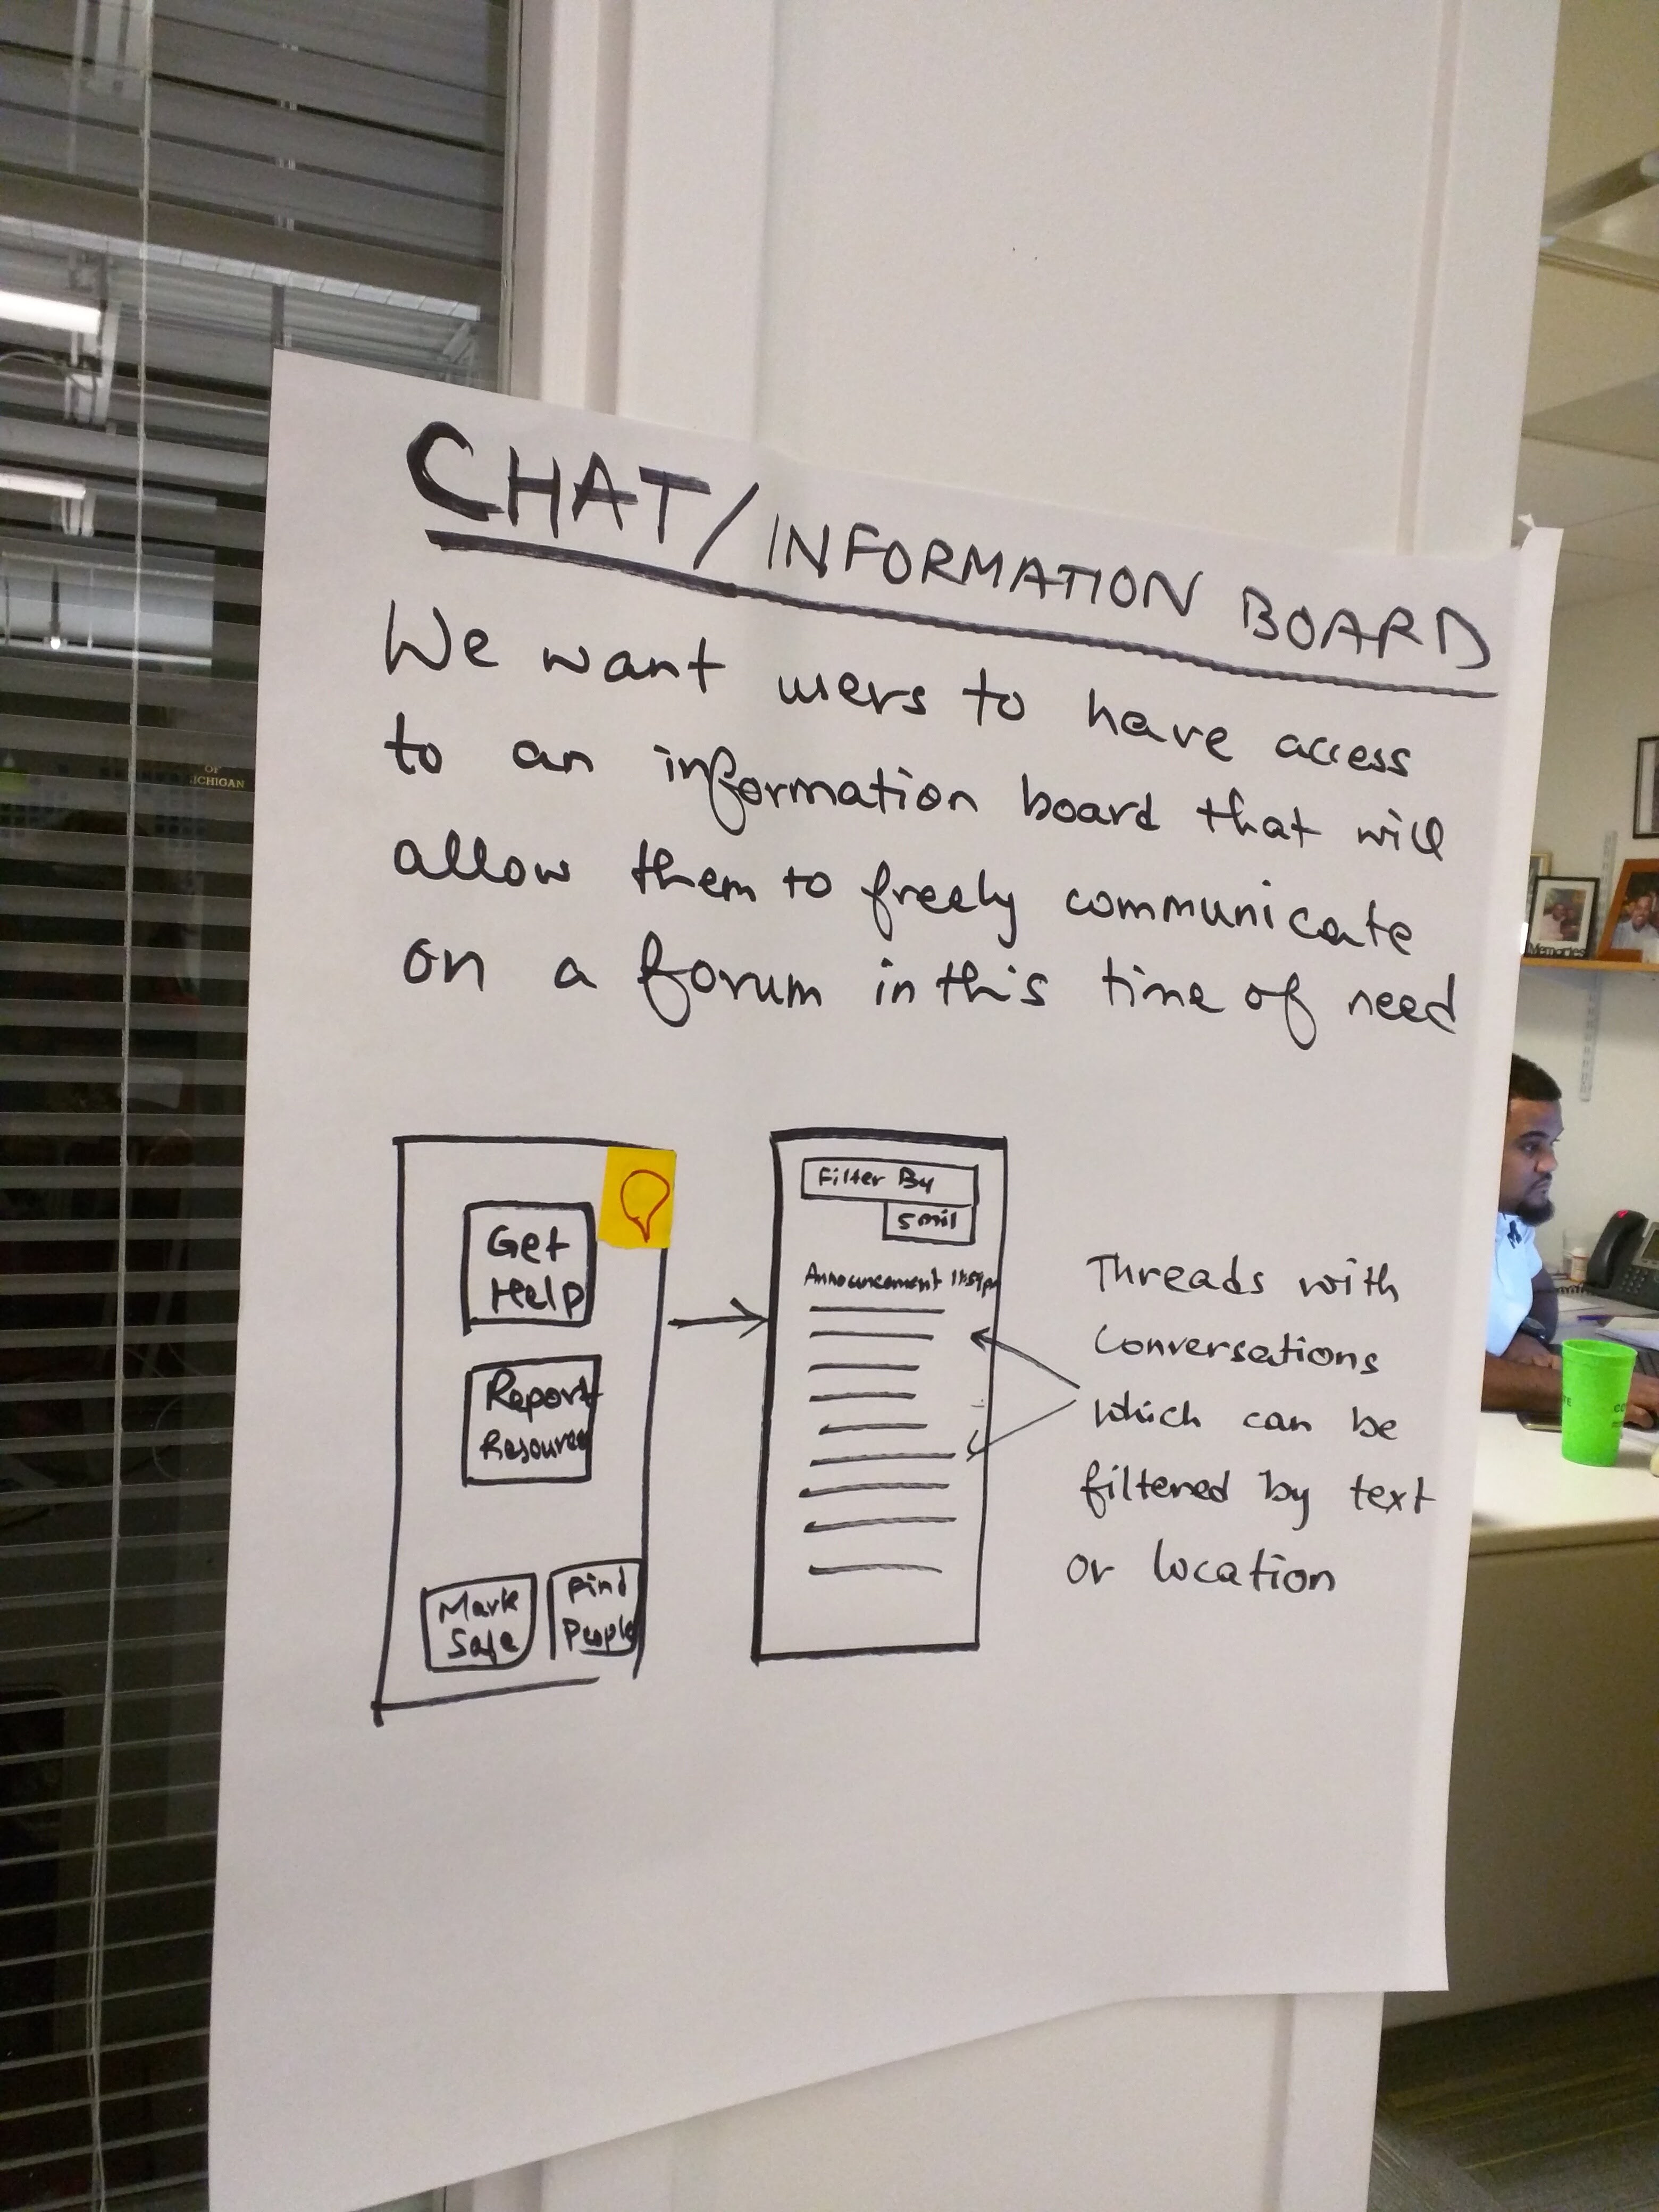 CHAT/INFORMATION BOARD
We want users to have access
to an information board that will
allow them to freely communicate
on a forum in this time of need
Get
Help
Report
Resource
Mark
Safe
Find
People
Filter By
5 mil
Announcement 11:59pm
Threads with
conversations
which can be
filtered by text
or location
OF
ICHIGAN
Memories